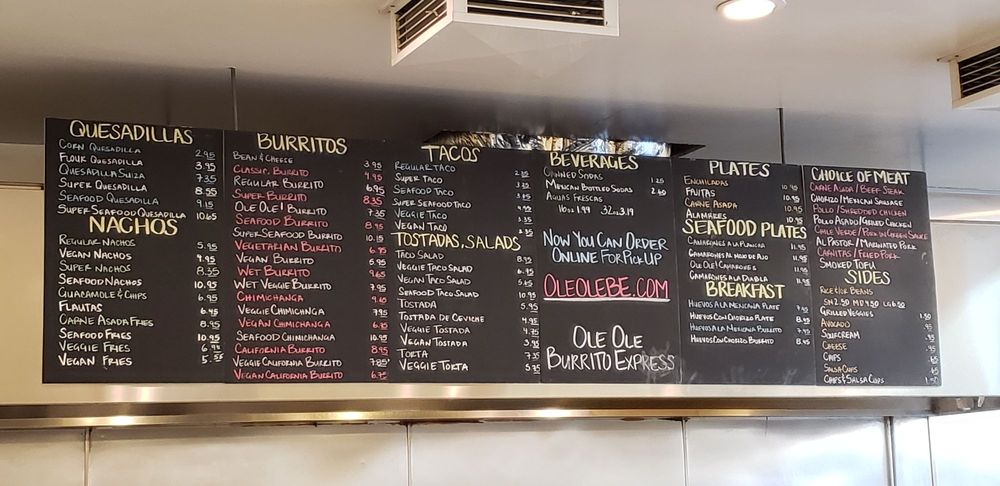 QUESADILLAS
CORN QUESADILLA 2.95
FLOUR QUESADILLA 3.95
QUESADILLA SUIZA 7.35
SUPER QUESADILLA 8.55
SEAFOOD QUESADILLA 9.15
SUPER SEAFOOD QUESADILLA 10.65
NACHOS
REGULAR NACHOS 5.95
VEGAN NACHOS 9.95
SUPER NACHOS 8.35
SEAFOOD NACHOS 10.95
GUACAMOLE & CHIPS 6.95
FLAUTAS 6.45
CARNE ASADA FRIES 8.95
SEAFOOD FRIES 10.95
VEGGIE FRIES
VEGAN FRIES
BURRITOS
BEAN & CHEESE 3.95
CLASSIC BURRITO
REGULAR BURRITO 6.95
SUPER BURRITO 8.35
OLE OLE! BURRITO 7.35
SEAFOOD BURRITO 8.95
SUPER SEAFOOD BURRITO 10.15
VEGETARIAN BURRITO
VEGAN BURRITO 5.95
WET BURRITO 9.65
WET VEGGIE BURRITO 7.95
CHIMICHANGA
VEGGIE CHIMICHANGA 7.95
VEGAN CHIMICHANGA
SEAFOOD CHIMICHANGA 10.95
CALIFORNIA BURRITO 8.95
VEGGIE CALIFORNIA BURRITO
VEGAN CALIFORNIA BURRITO
TACOS
REGULAR TACO
SUPER TACO
SEAFOOD TACO
SUPER SEAFOOD TACO
VEGGIE TACO
VEGAN TACO
TOSTADAS, SALADS
TACO SALAD 8.95
VEGGIE TACO SALAD
VEGAN TACO SALAD
SEAFOOD TACO SALAD 10.95
TOSTADA 5.95
TOSTADA DE CEVICHE 4.95
VEGGIE TOSTADA 4.75
VEGAN TOSTADA 3.95
TORTA 7.35
VEGGIE TORTA 5.75
BEVERAGES
CANNED SODAS 1.25
MEXICAN BOTTLED SODAS
AGUAS FRESCAS
16oz 1.99 32oz 3.19
NOW YOU CAN ORDER
ONLINE FOR PICK UP
OLEOLEBE.COM
OLE OLE
BURRITO EXPRESS
PLATES
ENCHILADAS 10.95
FAJITAS 10.95
CARNE ASADA 10.95
ALAMBRES 10.95
SEAFOOD PLATES
CAMARONES A LA PLANCHA 11.95
CAMARONES AL MOJO DE AJO 11.95
OLE OLE! CAMARONES 11.95
CAMARONES A LA DIABLA 11.95
BREAKFAST
HUEVOS A LA MEXICANA PLATE
HUEVOS CON CHORIZO PLATE 8.95
HUEVOS A LA MEXICANA BURRITO
HUEVOS CON CHORIZO BURRITO
CHOICE OF MEAT
CARNE ASADA / BEEF STEAK
CHORIZO / MEXICAN SAUSAGE
POLLO / SHREDDED CHICKEN
POLLO ASADO / GRILLED CHICKEN
CHILE VERDE / PORK IN GREEN SAUCE
AL PASTOR / MARINATED PORK
CARNITAS / FRIED PORK
SMOKED TOFU
SIDES
RICE OR BEANS
SM 2.50 MD 4.50 LG 6.50
GRILLED VEGGIES 1.50
AVOCADO
SOUR CREAM
CHEESE
CHIPS
SALSA CUPS
CHIPS & SALSA CUPS